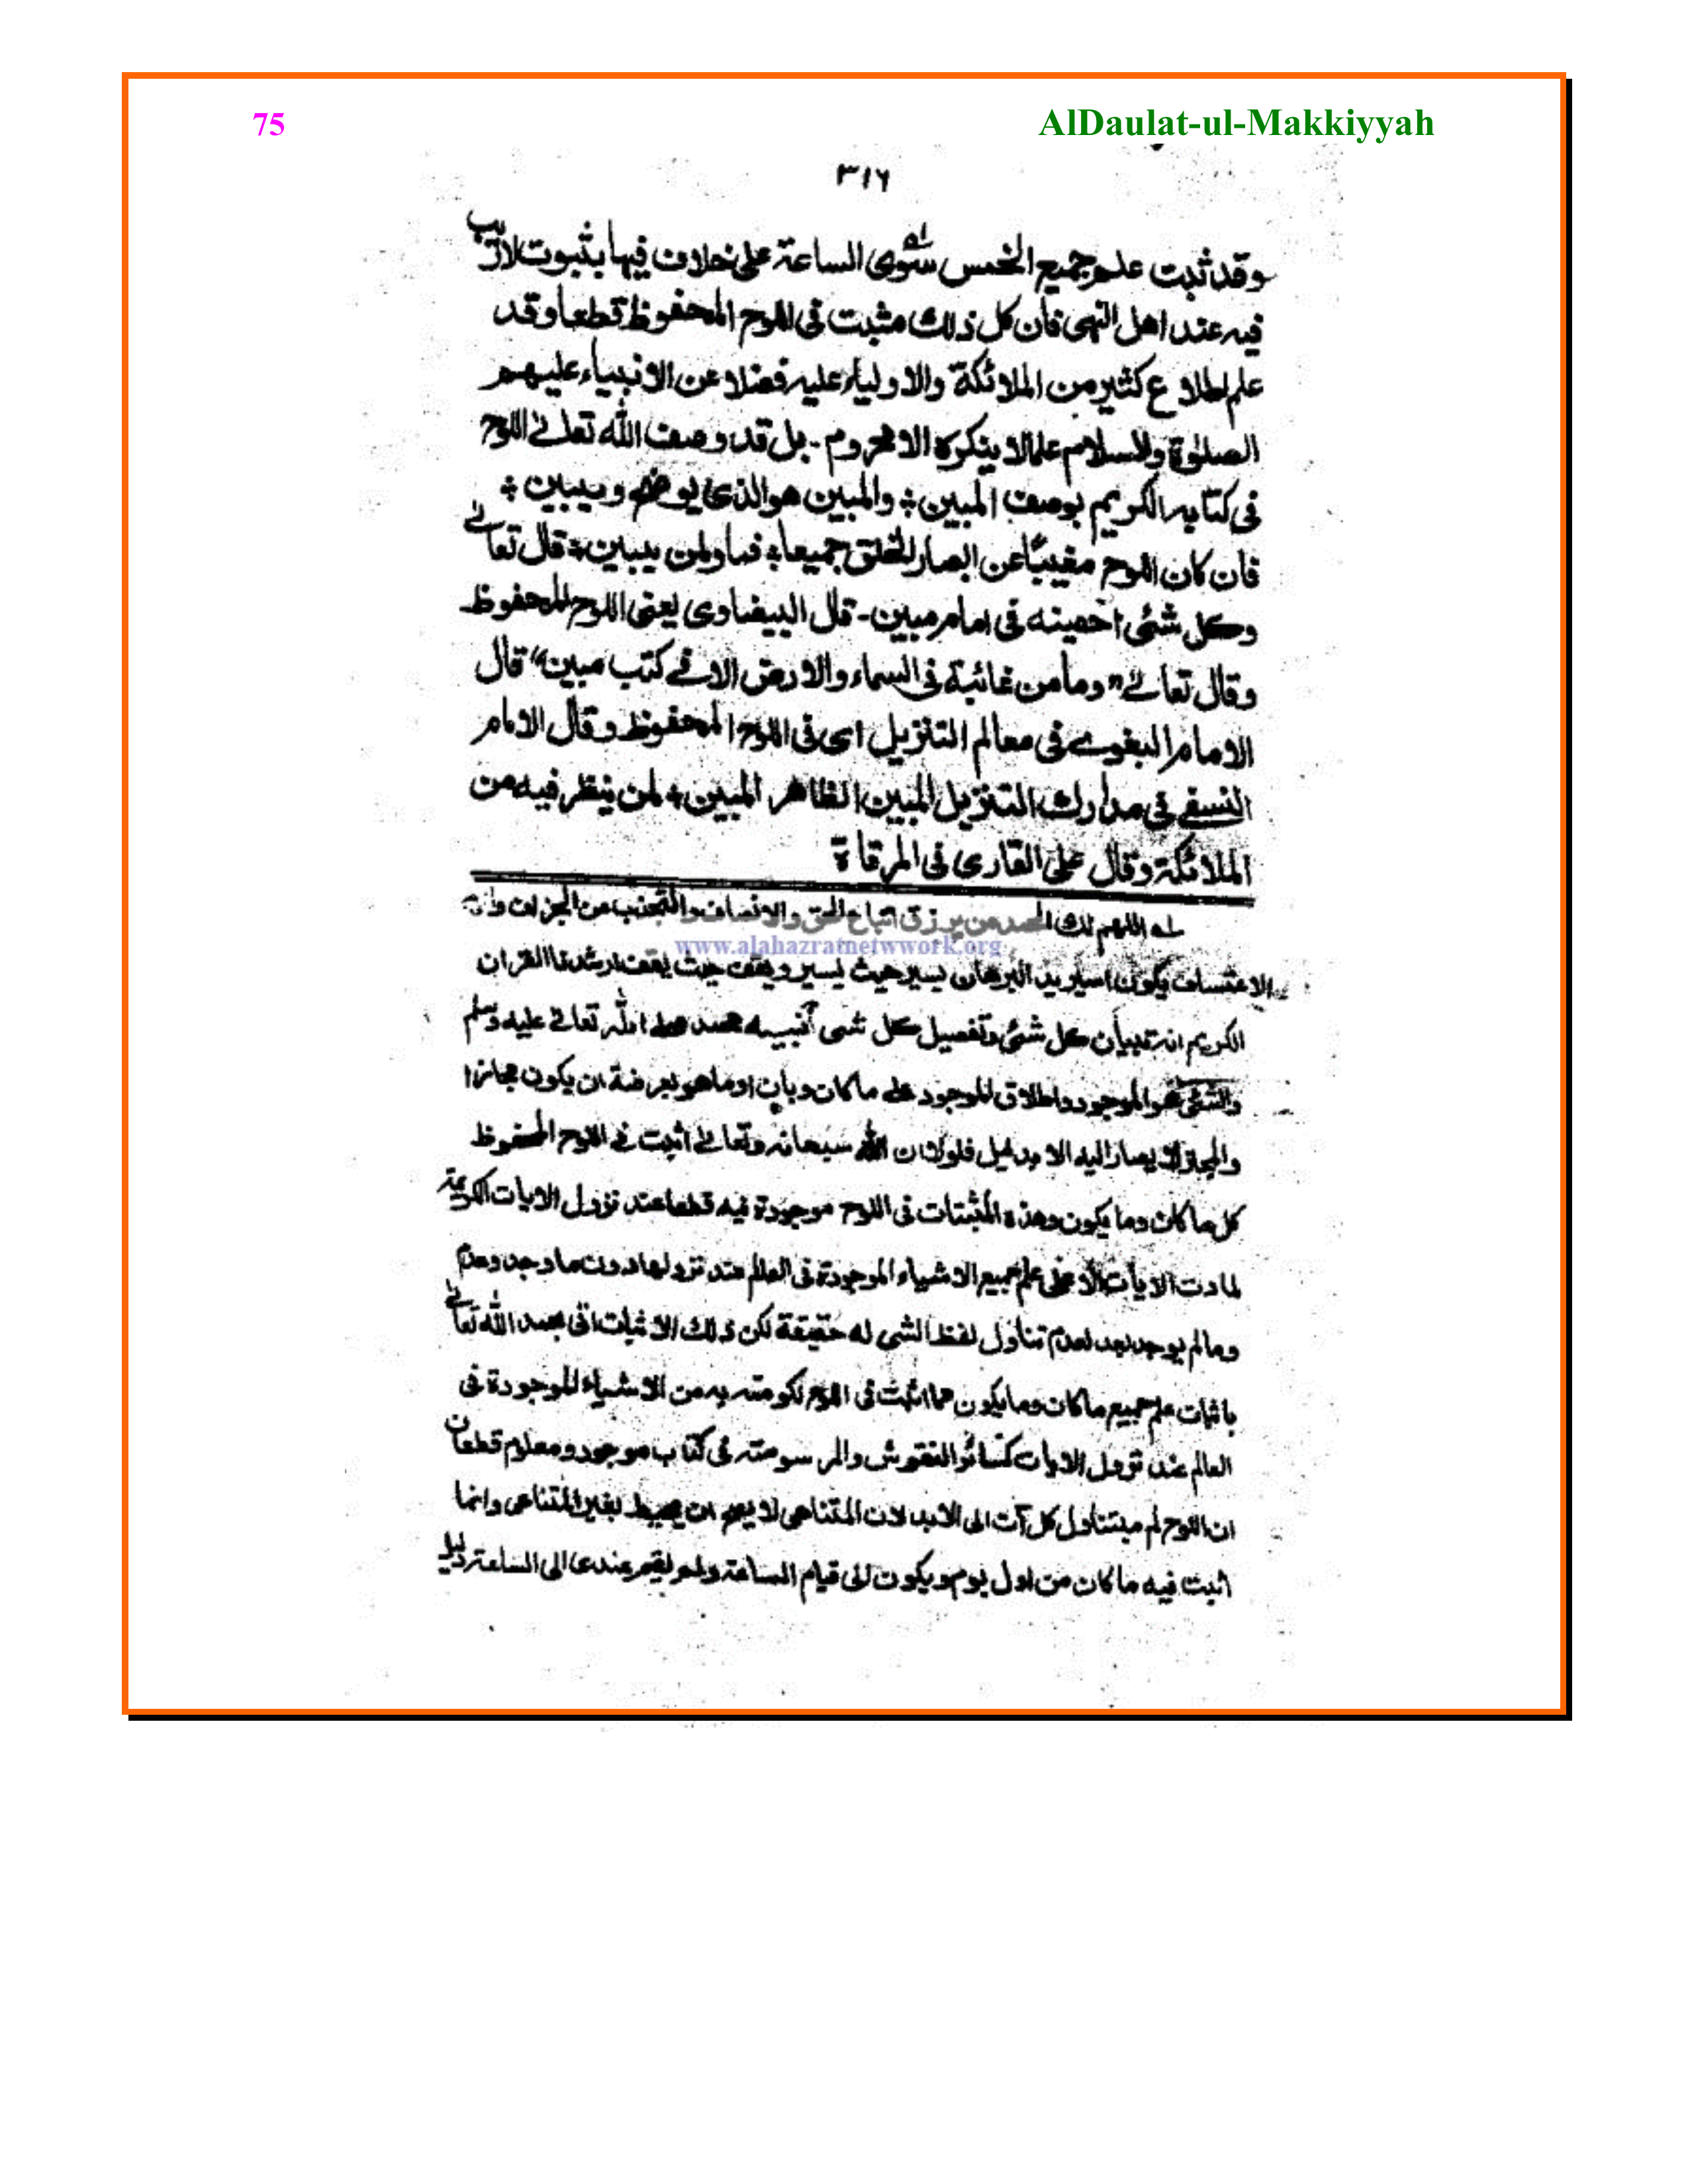 75
AlDaulat-ul-Makkiyyah
٣١٦
وقد ثبت علم جميع الخمس سوى الساعة على خلاف فيها بثبوت لا ريب
فيه عند اهل النهى فان كل ذلك مثبت فى اللوح المحفوظ قطعا وقد
علم اطلاع كثير من الملائكة والاولياء عليه فضلا عن الانبياء عليهم
الصلوة والسلام علما لا ينكره الا محروم ـ بل قد وصف الله تعالى اللوح
فى كتابه الكريم بوصف المبين ÷ والمبين هو الذى يوضح ويبين ÷
فان كان اللوح مغيبًا عن ابصار الخلق جميعا ÷ فما ولمن يبين ÷ قال تعالى
وكل شئى احصينه فى امام مبين ـ قال البيضاوى يعنى اللوح المحفوظ
وقال تعالى "وما من غائبة فى السماء والارض الا فى كتب مبين" قال
الامام البغوى فى معالم التنزيل اى فى اللوح المحفوظ وقال الامام
النسفى فى مدارك التنزيل المبين الظاهر المبين ÷ لمن ينظر فيه من
الملائكة وقال على القارى فى المرقاة
له اللهم لك الحمد من يرزق اتباع الحق والانصاف والتجنب عن الجزاف و
www.alahazratnetwwork.org
الاعتساف يكون اسيرا بيد البرهان يسير حيث يسير ويقف حيث يقف ارشدنا القران
الكريم انه تبيان كل شئى وتفصيل كل شى لنبيه محمد صلى الله تعالى عليه وسلم
والشئى هو الموجود واطلاق الموجود على ما كان وبان او ما هو بعرضة ان يكون مجازا
والمجاز لا يصار اليه الا بدليل فلولا ان الله سبحانه وتعالى اثبت فى اللوح المحفوظ
كل ما كان وما يكون وهذه المثبتات فى اللوح موجودة فيه قطعا عند نزول الايات الكريمة
لما دت الايات الا على علم جميع الاشياء الموجودة فى العالم عند نزولها دون ما وجد وعدم
وما لم يوجد بعد لعدم تناول لفظ الشى له حقيقة لكن ذلك الاثبات اتى بحمد الله تعالى
باثبات علم جميع ما كان وما يكون مما اثبت فى اللوح لكونه من الاشياء الموجودة فى
العالم عند نزول الايات كسائر النقوش والمرسومة فى كتاب موجود ومعلوم قطعا
ان اللوح لم يتناول كل آت الى الابد لان المتناهى لا يعم ان يحيط بغير المتناهى وانما
اثبت فيه ما كان من اول يوم ويكون الى قيام الساعة ولم يقم عندى الى الساعة دليل